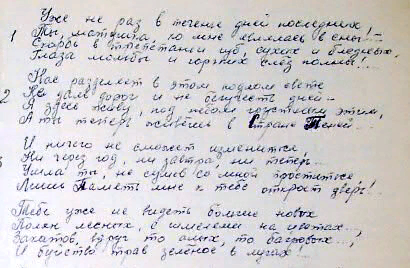 Уже не раз в теченье дней последних
1 Ты, матушка, ко мне являлась в сны!..
Скорбь в трепетаньи губ, сухих и бледных.
Глаза мольбы и горьких слёз полны!..
Нас разделяет в этом подлом свете
2 Не даль дорог и не бегучесть дней –
Я здесь живу, под небом грустным этим,
А ты теперь живёшь в Стране Теней...
И ничего не сможет измениться
Ни через год, ни завтра, ни теперь...
Ушла ты, не сумев со мной проститься
Лишь Память мне к тебе откроет дверь!..
Тебе уже не видеть больше новых
Полян лесных, с шмелями на цветах...,
Закатов, вдруг то алых, то багровых...,
И буйство трав зелёное в лугах...